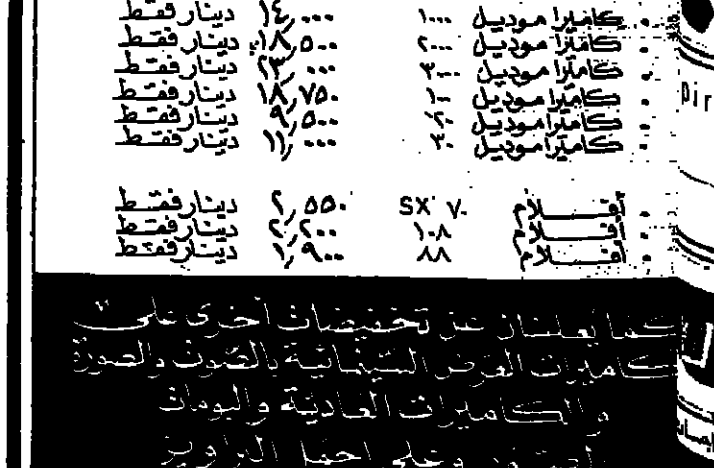 • كاميرا موديل ١٠٠٠ ١٤,٠٠٠ دينار فقط
• كاميرا موديل ٢٠٠٠ ١٨,٥٠٠ دينار فقط
• كاميرا موديل ٣٠٠٠ ٢٣,٠٠٠ دينار فقط
• كاميرا موديل ١٠٠ ١٨,٧٥٠ دينار فقط
• كاميرا موديل ٢٠ ٩,٥٠٠ دينار فقط
• كاميرا موديل ٣٠ ١١,٠٠٠ دينار فقط
• أفلام SX ٧٠ ٢,٥٥٠ دينار فقط
• أفلام ١٠٨ ٢,٢٠٠ دينار فقط
• أفلام ٨٨ ١,٩٠٠ دينار فقط
كما يعلنان عن تخفيضات أخرى على
كاميرات العرض السينمائية بالصوت والصورة
والكاميرات العادية والبومات
الصور وعلى احمل البراويز
pir